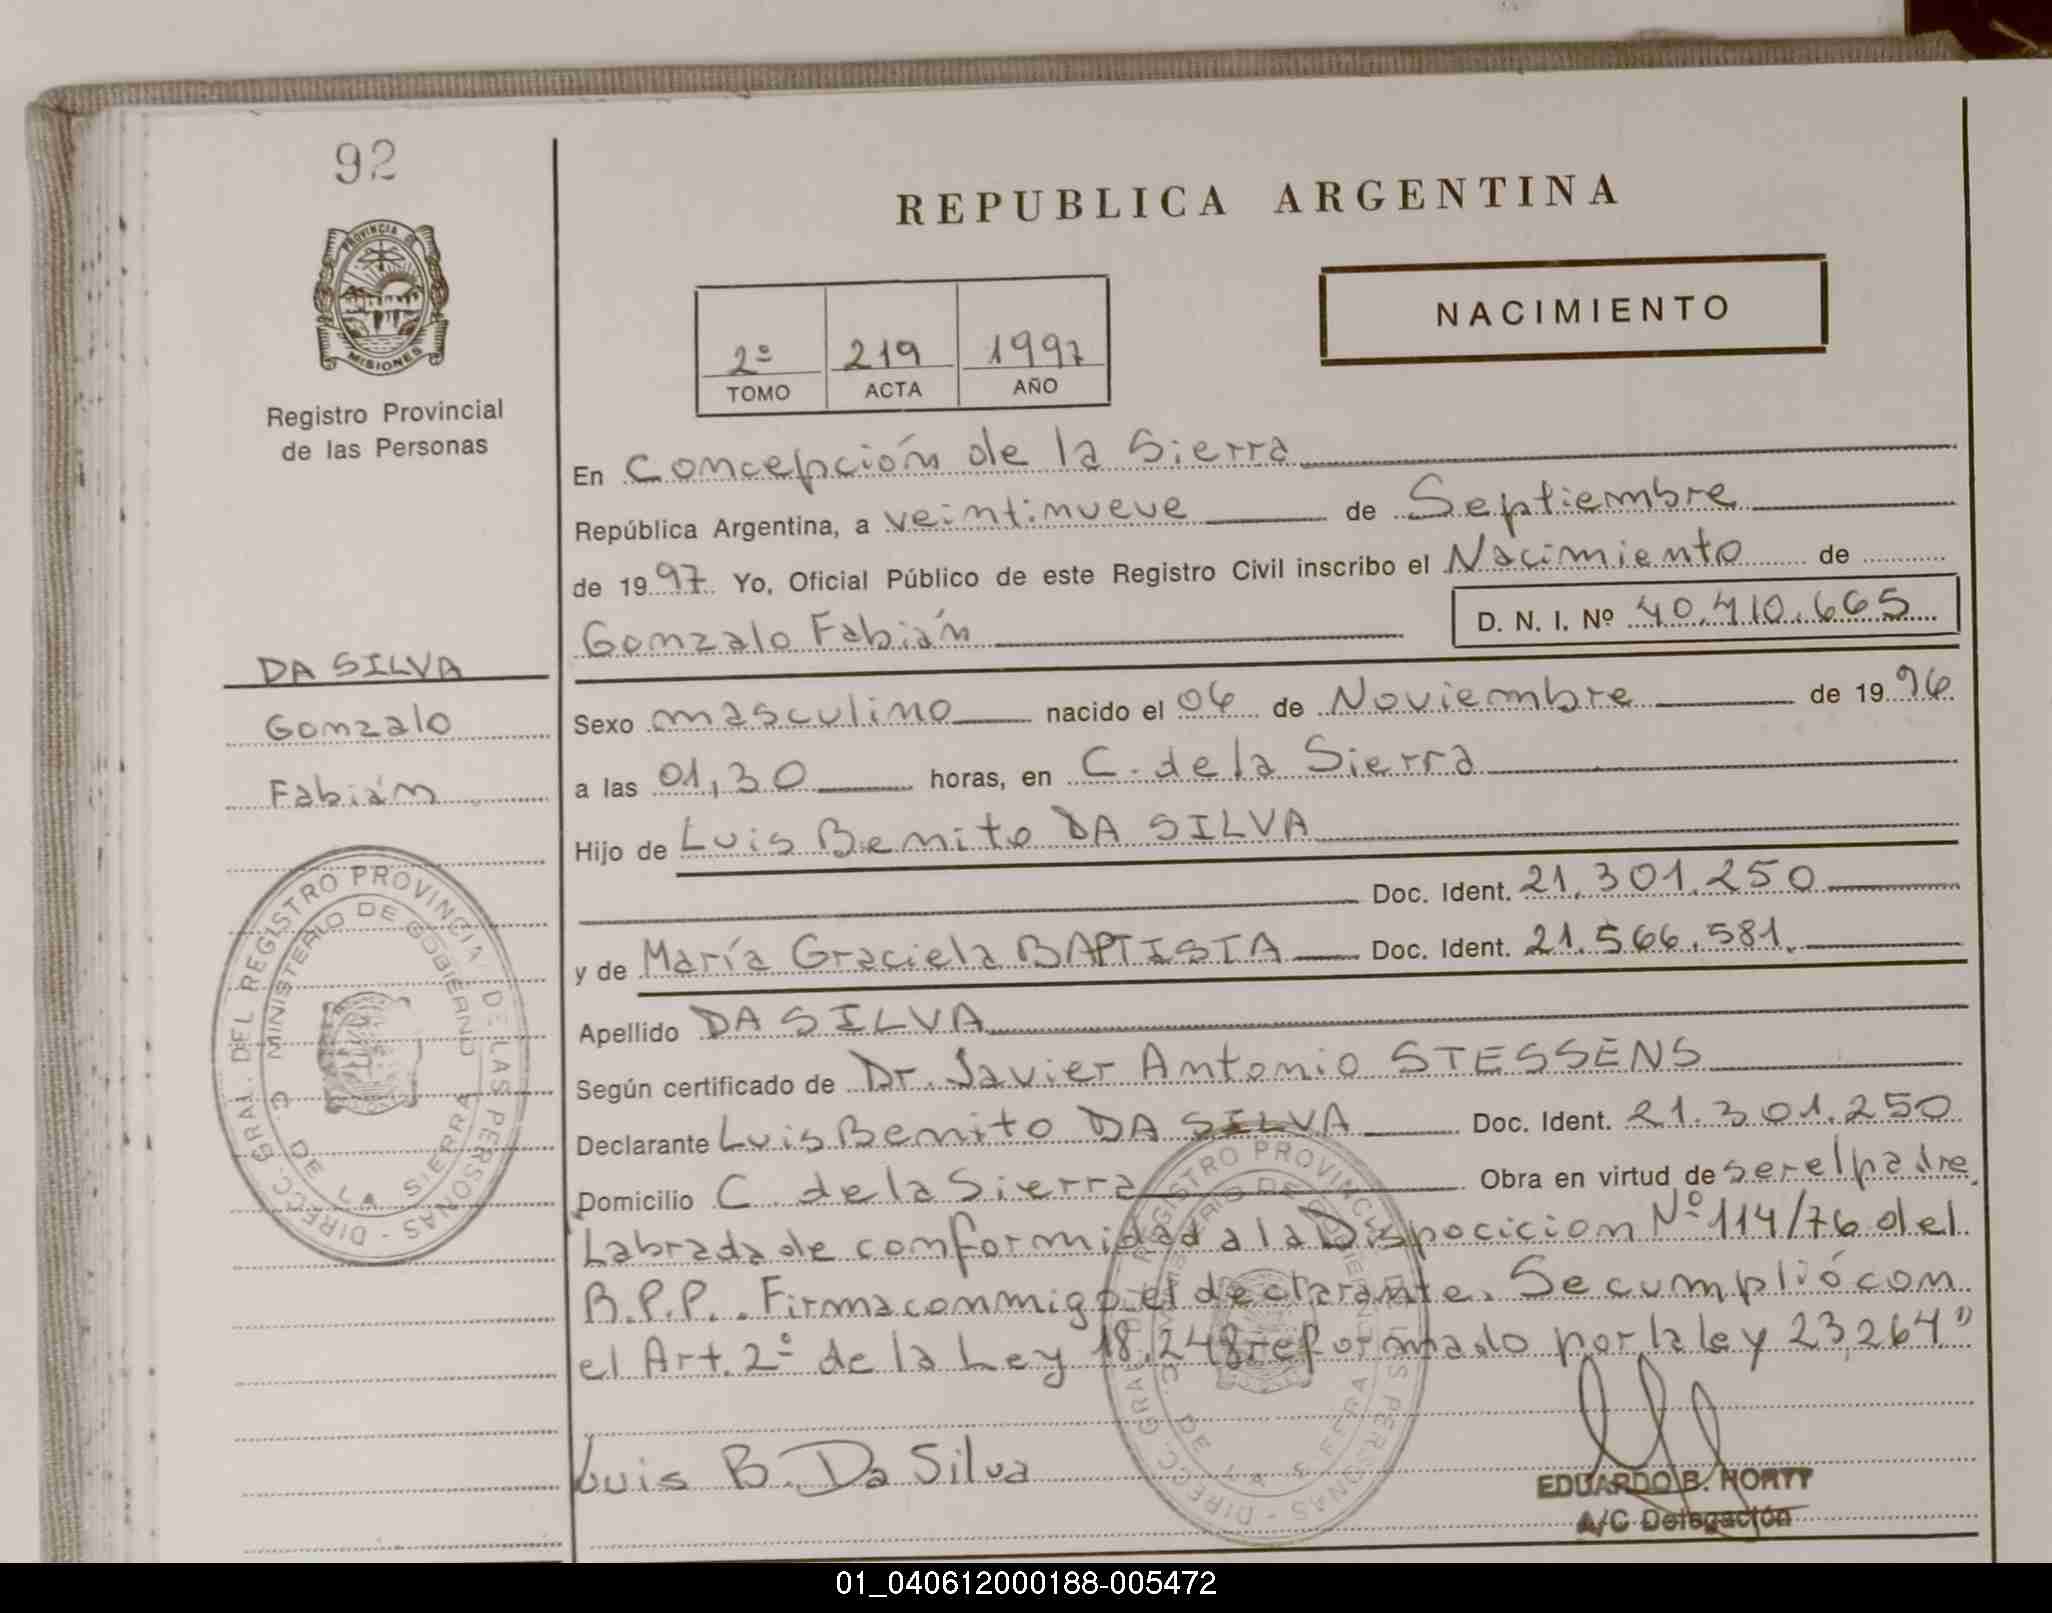 92
PROVINCIA DE
MISIONES
Registro Provincial
de las Personas
DA SILVA
Gonzalo
Fabián
DIREC. GRAL. DEL REGISTRO PROVINCIAL DE LAS PERSONAS
MINISTERIO DE GOBIERNO
DE LA SIERRA
REPUBLICA ARGENTINA
NACIMIENTO
2º 219 1997
TOMO ACTA AÑO
En Concepción de la Sierra
República Argentina, a veintinueve de Septiembre
de 1997 Yo, Oficial Público de este Registro Civil inscribo el Nacimiento de
Gonzalo Fabián D. N. I. Nº 40.410.665
Sexo masculino nacido el 06 de Noviembre de 1996
a las 01,30 horas, en C. de la Sierra
Hijo de Luis Benito DA SILVA
Doc. Ident. 21.301.250
y de María Graciela BAPTISTA Doc. Ident. 21.566.581.
Apellido DA SILVA
Según certificado de Dr. Javier Antonio STESSENS
Declarante Luis Benito DA SILVA Doc. Ident. 21.301.250
Domicilio C. de la Sierra Obra en virtud de ser el padre.
Labrada de conformidad a la Dispocicion Nº 114/76 del
R.P.P.. Firma conmigo el declarante. Se cumplió con
el Art. 2º de la Ley 18.248 reformado por la ley 23,264"
Luis B. Da Silva
DIREC. GRAL. DEL REGISTRO PROVINCIAL DE LAS PERSONAS
MINISTERIO DE GOBIERNO
DE LA SIERRA
EDUARDO B. HORTT
A/C Delegación
01_040612000188-005472